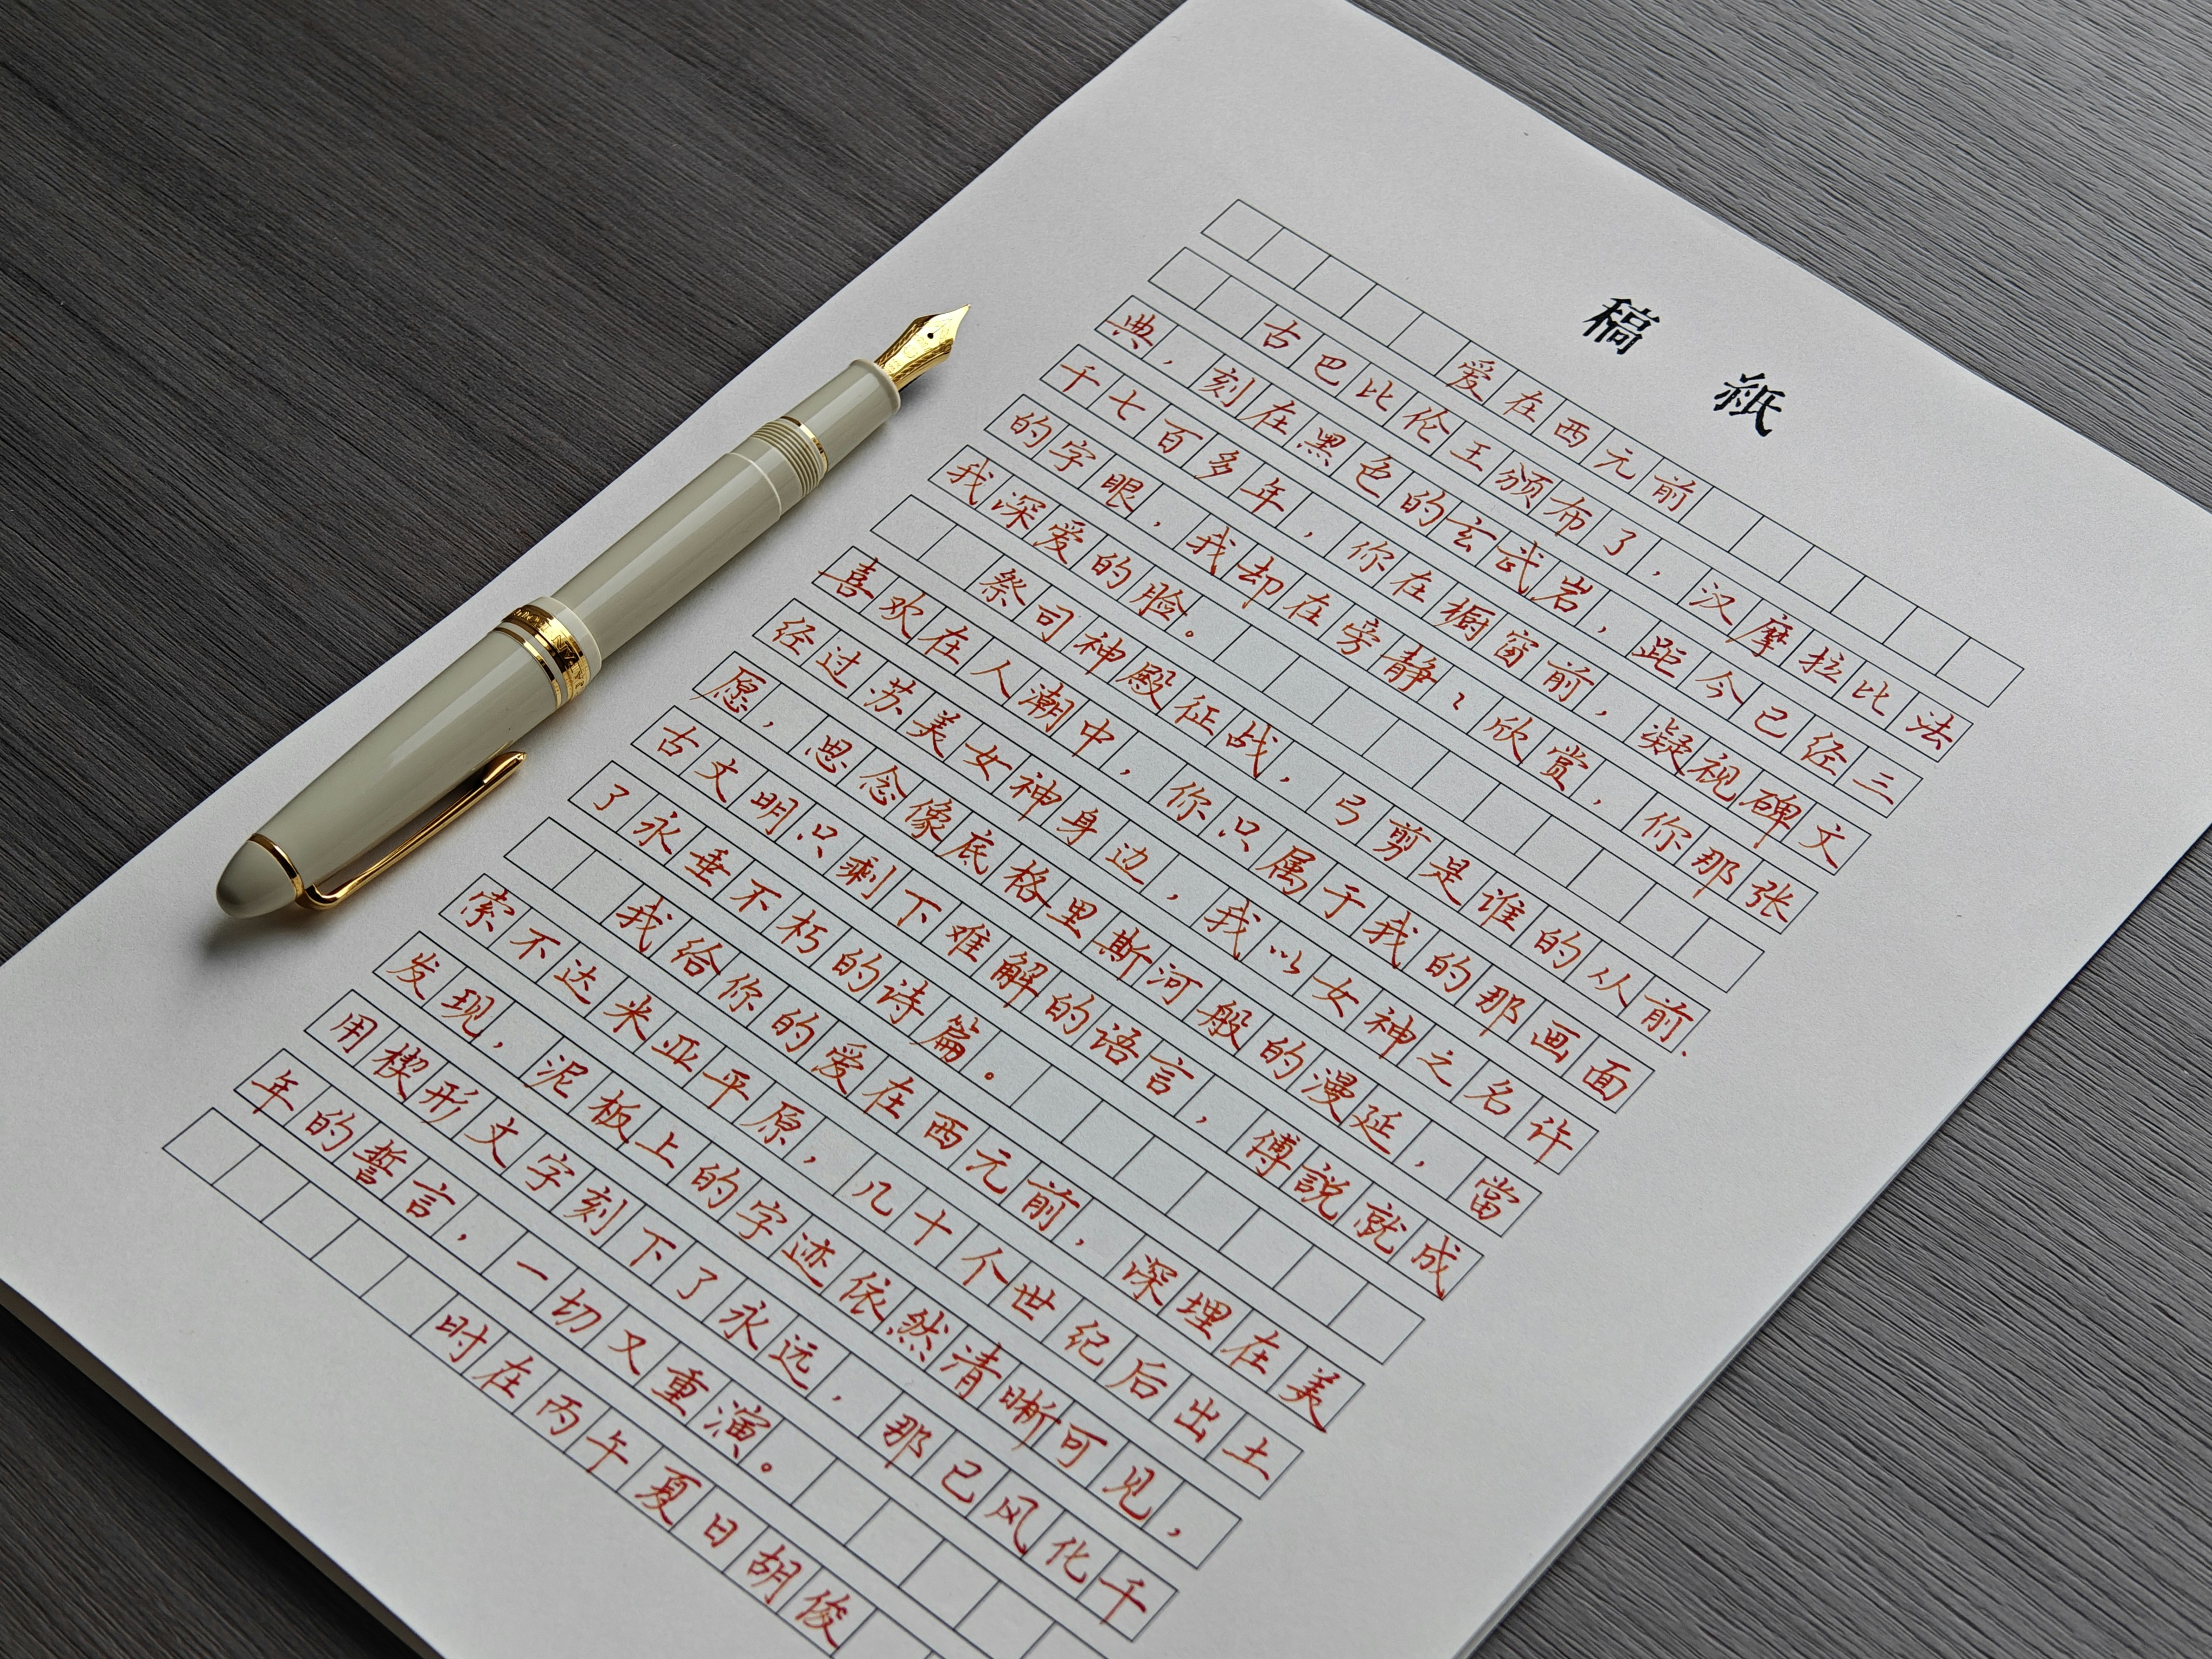 稿紙
爱在西元前
古巴比伦王颁布了，汉摩拉比法
典，刻在黑色的玄武岩，距今已经三
千七百多年，你在橱窗前，凝视碑文
的字眼，我却在旁静〻欣赏，你那张
我深爱的脸。
祭司神殿征战，弓剪是谁的从前.
喜欢在人潮中，你只属于我的那画面
经过苏美女神身边，我以女神之名许
愿，思念像底格里斯河般的漫延，當
古文明只剩下难解的语言，傅説就成
了永垂不朽的诗篇。
我给你的爱在西元前，深埋在美
索不达米亚平原，几十个世纪后出土
发现，泥板上的字迹依然清晰可见，
用楔形文字刻下了永远，那已风化千
年的誓言，一切又重演。
时在丙午夏日胡俊